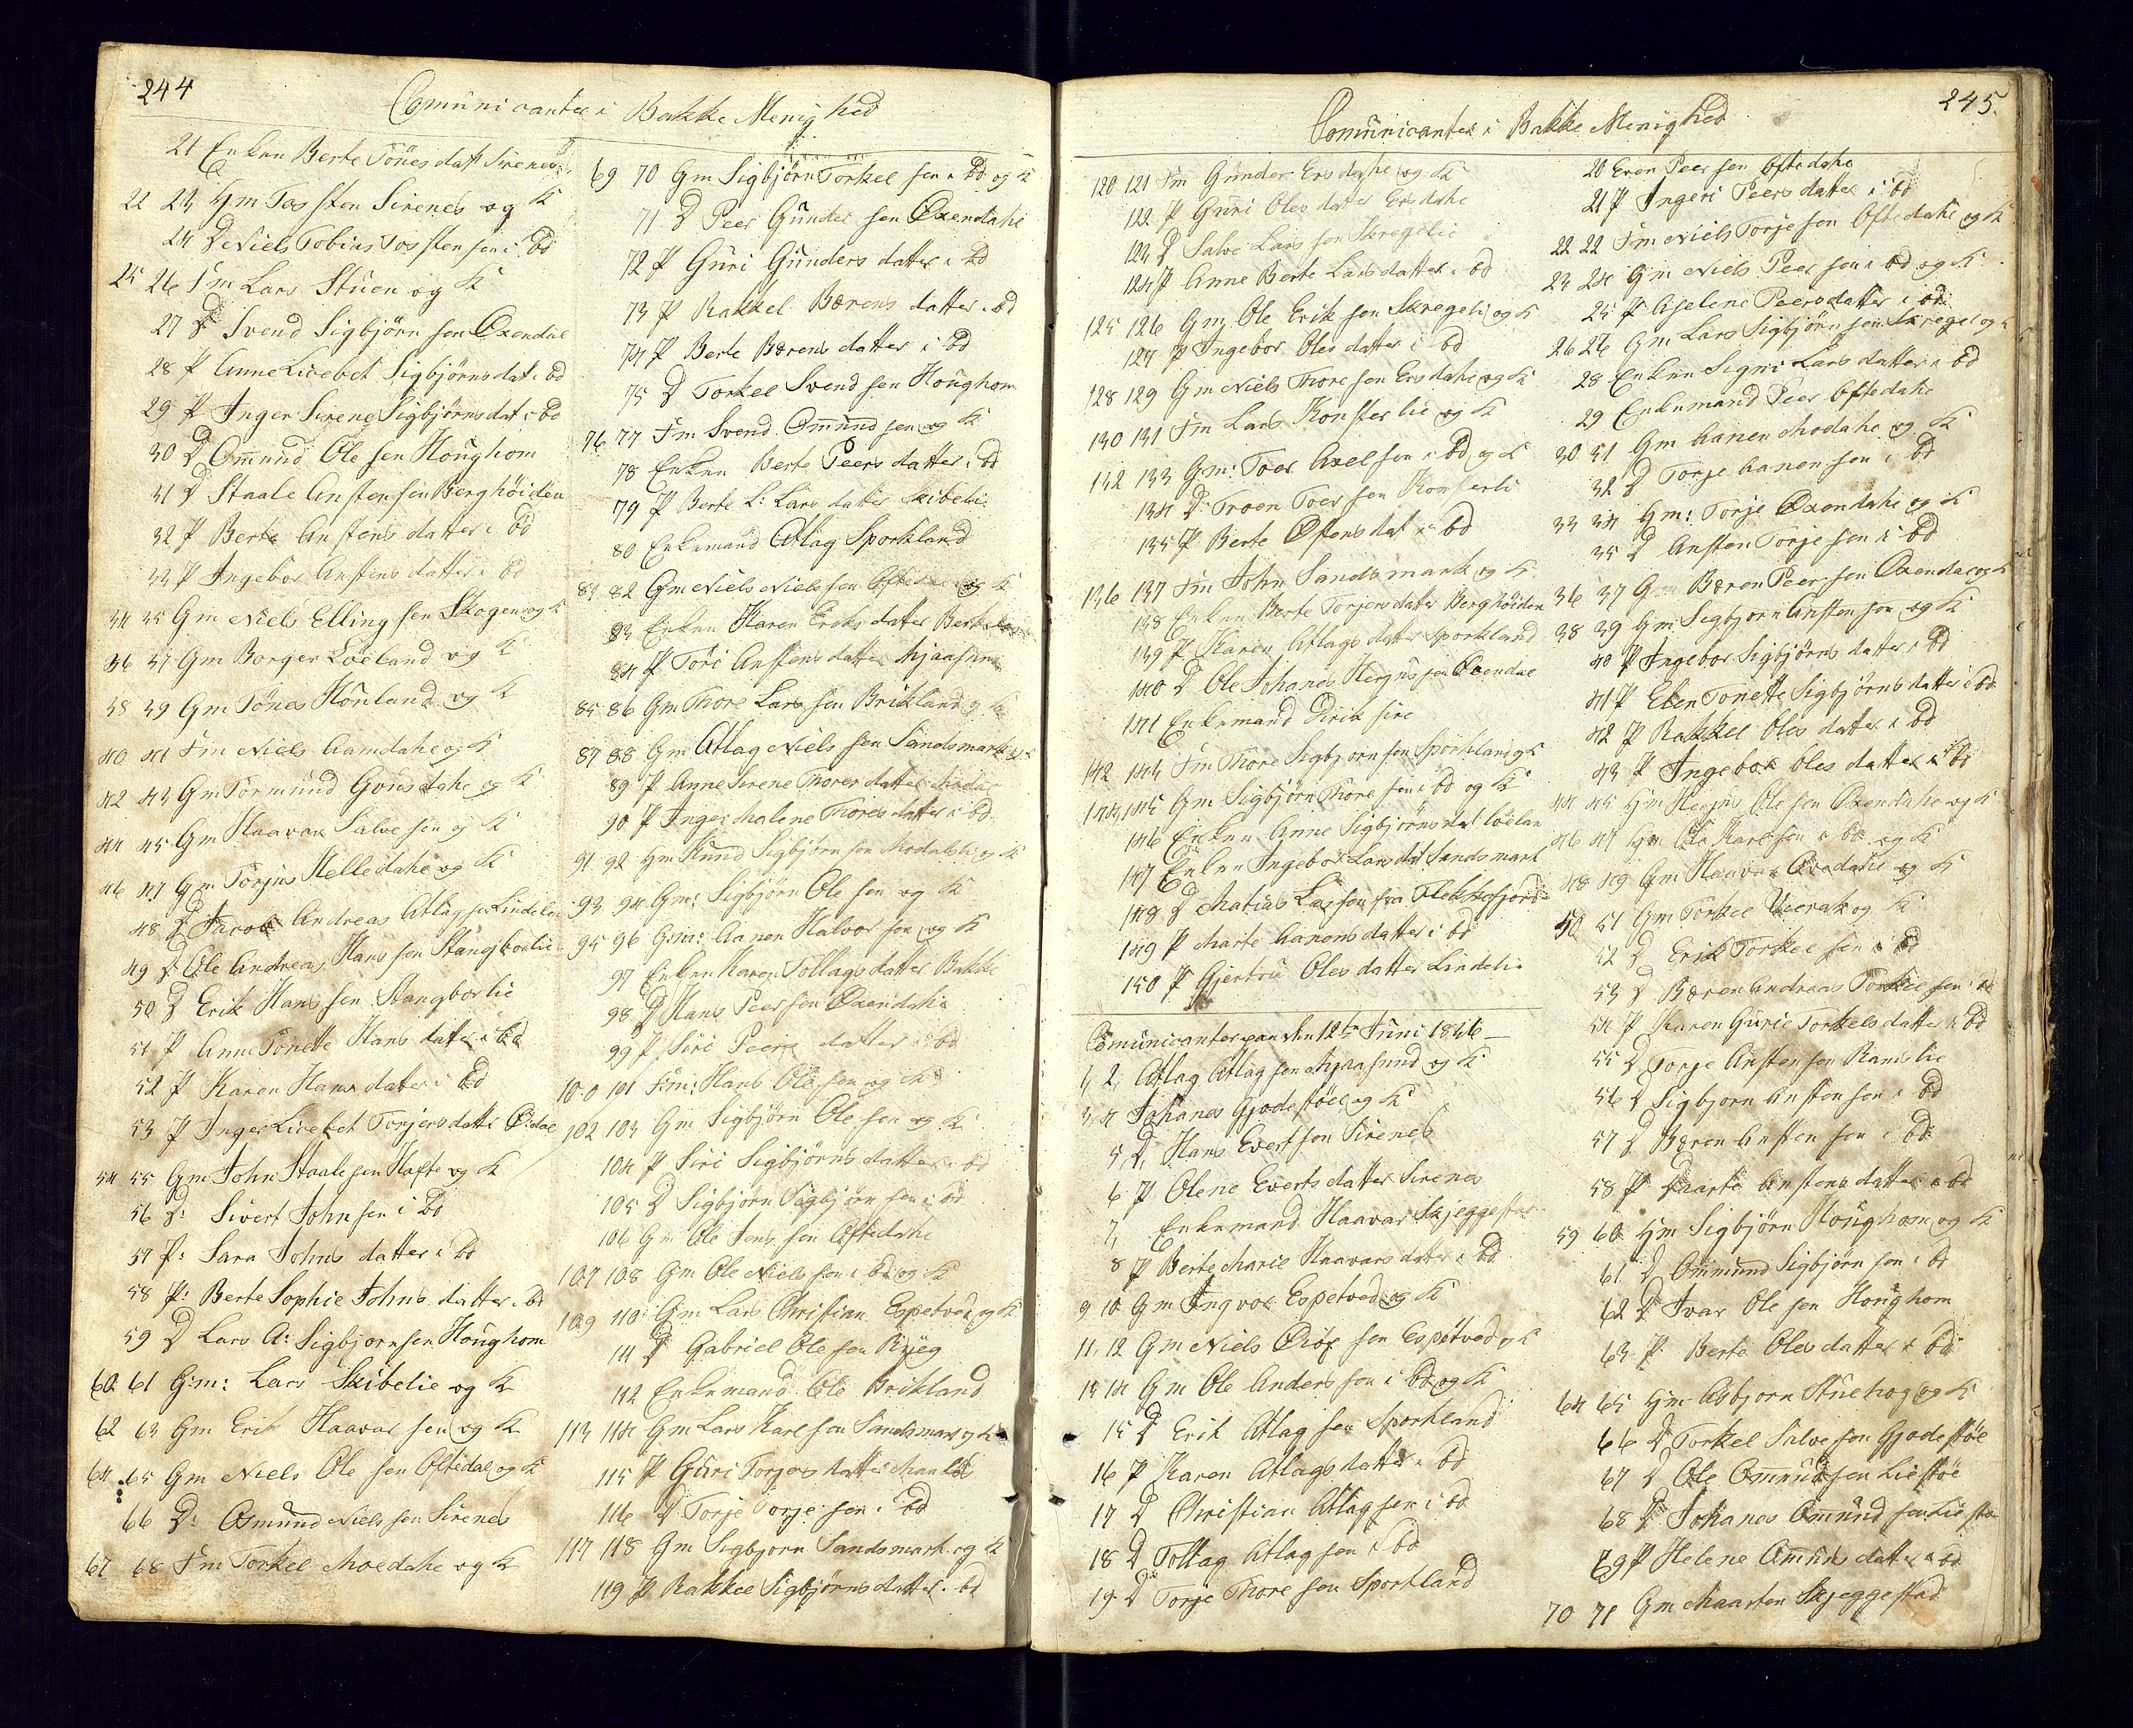 244
Comunicanter i Bakke Menighed
21 Enken Berte Tönes datt Sirenes
22 23 Hm Tosten Sirenes og K
24 D Niels Tobias Tosten sen i bd
25 26 Fm Lars Stuen og K
27 D Svend Sigbjörn sen Oxendal
28 P Anne Lisebet Sigbjörns dat i bd
29 P Inger Sirene Sigbjörns dat i bd
30 D Ommund Ole sen Houghom
31 D Staale Ansten sen Berghöiden
32 P Berte Anstens datter i bd
33 P Ingebor Anstens datter i bd
34 35 Gm Niels Elling sen Skogen og K
36 37 Gm Borger Loeland og K
38 39 Gm Tönes Houland og K
40 41 Fm Niels Aamdahl og K
42 43 Gm Tormund og K
44 45 Gm Haavar Salve sen og K
46 47 Gm Torjus Helledahl og K
48 D Jacob Andreas Atlag sen Lindeli
49 D Ole Andreas Hans sen Stangborlie
50 D Erik Hans sen Stangborlie
51 P Anne Tonette Hans datt i bd
52 P Karen Hans datter i bd
53 P Inger Lisebet Torjers datt
54 55 Gm John Staale sen Hafte og K
56 D: Sivert John sen i bd
57 P: Sara Johns datter i bd
58 P: Berte Sophie Johns datter i bd
59 D Lars A: Sigbjorn sen Houghom
60 61 G:m: Lars Skibelie og K
62 63 Gm Erik Haavar sen og K
64 65 Gm Niels Ole sen Oftedal og K
66 D: Osmund Niels sen Sirenes
67 68 Fm Torkel Moedahl og K
69 70 Gm Sigbjörn Torkel sen i bd og K
71 D Peer Gunder sen Oxendahl
72 P Guri Gunders datter i bd
73 P Rakkel Bærens datter i bd
74 P Berte Bærens datter i bd
75 D Torkel Svend sen Houghom
76 77 Fm Svend Ommund sen og K
78 Enken Berte Peers datter i bd
79 P Berte L: Lars datter Skibeli
80 Enkemand Atlag Sporkland
81 82 Gm Niels Niels sen og K
83 Enken Karen Eriks datter
84 P Töri Anstens datter Mjaasund
85 86 Gm Thore Lars sen Brikland og K
87 88 Gm Atlag Niels sen Sandsmark og K
89 P Anne Sirene Thores datter Modal
90 P Inger Malene Thores datter i bd
91 92 Hm Knud Sigbjörn sen og K
93 94 Gm: Sigbjörn Ole sen og K
95 96 Gm: Aanen Halvor sen og K
97 Enken Karen Tollags datter Bakke
98 D Hans Peer sen Oxendahl
99 P Siri Peers datter i bd
100 101 Fm: Hans Ole sen og K
102 103 Gm Sigbjörn Ole sen og K
104 P Siri Sigbjörns datter i bd
105 D Sigbjorn Sigbjörn sen i bd
106 Gm Ole Jens sen Oftedahl
107 108 Gm Ole Niels sen i bd og K
109 110 Gm Lars Christian Espetved og K
111 D Gabriel Ole sen
112 Enkemand Ole Brikland
113 114 Gm Lars Karl sen Sandsmark og K
115 P Guri Torjers datter
116 D Torje Torje sen i bd
117 118 Gm Sigbjorn Sandsmark og K
119 P Rakkel Sigbjörns datter i bd
245.
Comunicanter i Bakke Menighed
120 121 Fm Gunder Ersdahl og K
122 P Guri Oles datter Ersdahl
123 D Salve Lars sen Skregelie
124 P Anne Berte Lars datter i bd
125 126 Gm Ole Erik sen Skregeli og K
127 P Ingebor Oles datter i bd
128 129 Gm Niels Thore sen Ersdahl og K
130 131 Fm Lars Konsterlie og K
132 133 Gm: Toer Axel sen i bd og K
134 D Troen Toer sen Konserli
135 P Berte Östens dat i bd
136 137 Fm John Sandsmark og K
138 Enken Berte Torjers datter Berghöiden
139 P Karen Atlags datter Sporkland
140 D Ole Johanes Herjus sen Oxendal
141 Enkemand Eirik sire
142 143 Fm Thore Sigbjorn sen Sporkland og K
144 145 Gm Sigbjörn Thore sen i bd og K
146 Enken Anne Sigbjörns dat Loelan
147 Enken Ingebor Lars dat Sandsmark
148 D Matias Lar sen fra Flekkefjord
149 P Marte Aanens datter i bd
150 P Gjertru Oles datter Lindeli
Comunicanter paa den 12te Juni 1836
1, 2, Atlag Atlag sen Mjaasund og K
3, 4 Johanes Gjodestöel og K
5 D, Hans Evert sen Sirenes
6 P Olene Everts datter Sirenes
7, Enkemand Haavar Skjeggestad
8 P Berte Marie Haavars datter i bd
9 10 Gm Ingvor Espetved og K
11, 12 Gm Niels sen Espetved og K
13 14 Gm Ole Anders sen i bd og K
15 D Erik Atlag sen Sporkland
16 P Karen Atlags datter i bd
17 D Christian Atlag sen i bd
18 D Tollag Atlag sen i bd
19 D Torje Thore sen Sporkland
20 Even Peer sen Oftedahl
21 P Ingeri Peers datter i bd
22 22 Fm Niels Torje sen Oftedahl og K
23 24 Gm Niels Peer sen i bd og K
25 P Aselene Peers datter i bd
26 26 Gm Lars Sigbjörn sen Skregeli og K
28 Enken Signi Lars datter i bd
29 Enkemand Peer Oftedahl
30 31 Gm Aanen Modahl og K
32 D Torje Aanen sen i bd
33 34 Hm: Torje Oxendahl og K
35 D Ansten Torje sen i bd
36 37 Gm Bæren Peer sen Oxendal og K
38 39 Gm Sigbjorn Ansten sen og K
40 P Ingebor Sigbjörns datter i bd
41 P Elen Tonette Sigbjörns datter i bd
42 P Rakkel Oles datter i bd
43 P Ingebor Oles datter i bd
44 45 Hm Herjus Ole sen Oxendahl og K
46 47 Gm Ole Karl sen i bd og K
48 49 Gm Haavar Ovedahl og K
50 51 Gm Torkel og K
52 D Erik Torkel sen i bd
53 D Bæren Andreas Torkel sen i bd
54 P Karen Gurie Torkels datter i bd
55 D Torje Ansten sen Ramslie
56 D Sigbjorn Ansten sen i bd
57 D Bæren Ansten sen i bd
58 P Maarte Anstens datter i bd
59 60 Hm Sigbjörn Houghom og K
61 D Ommund Sigbjörn sen i bd
62 D Ivar Ole sen Houghom
63 P Berte Oles datter i bd
64 65 Hm Asbjorn Stuehog og K
66 D Torkel Salve sen Gjodestöl
67 D Ole Ommund sen Liestöl
68 D Johanes Omund sen Liestöl
69 P Helene Omunds datter i bd
70 71 Gm Maarten Skjeggestad